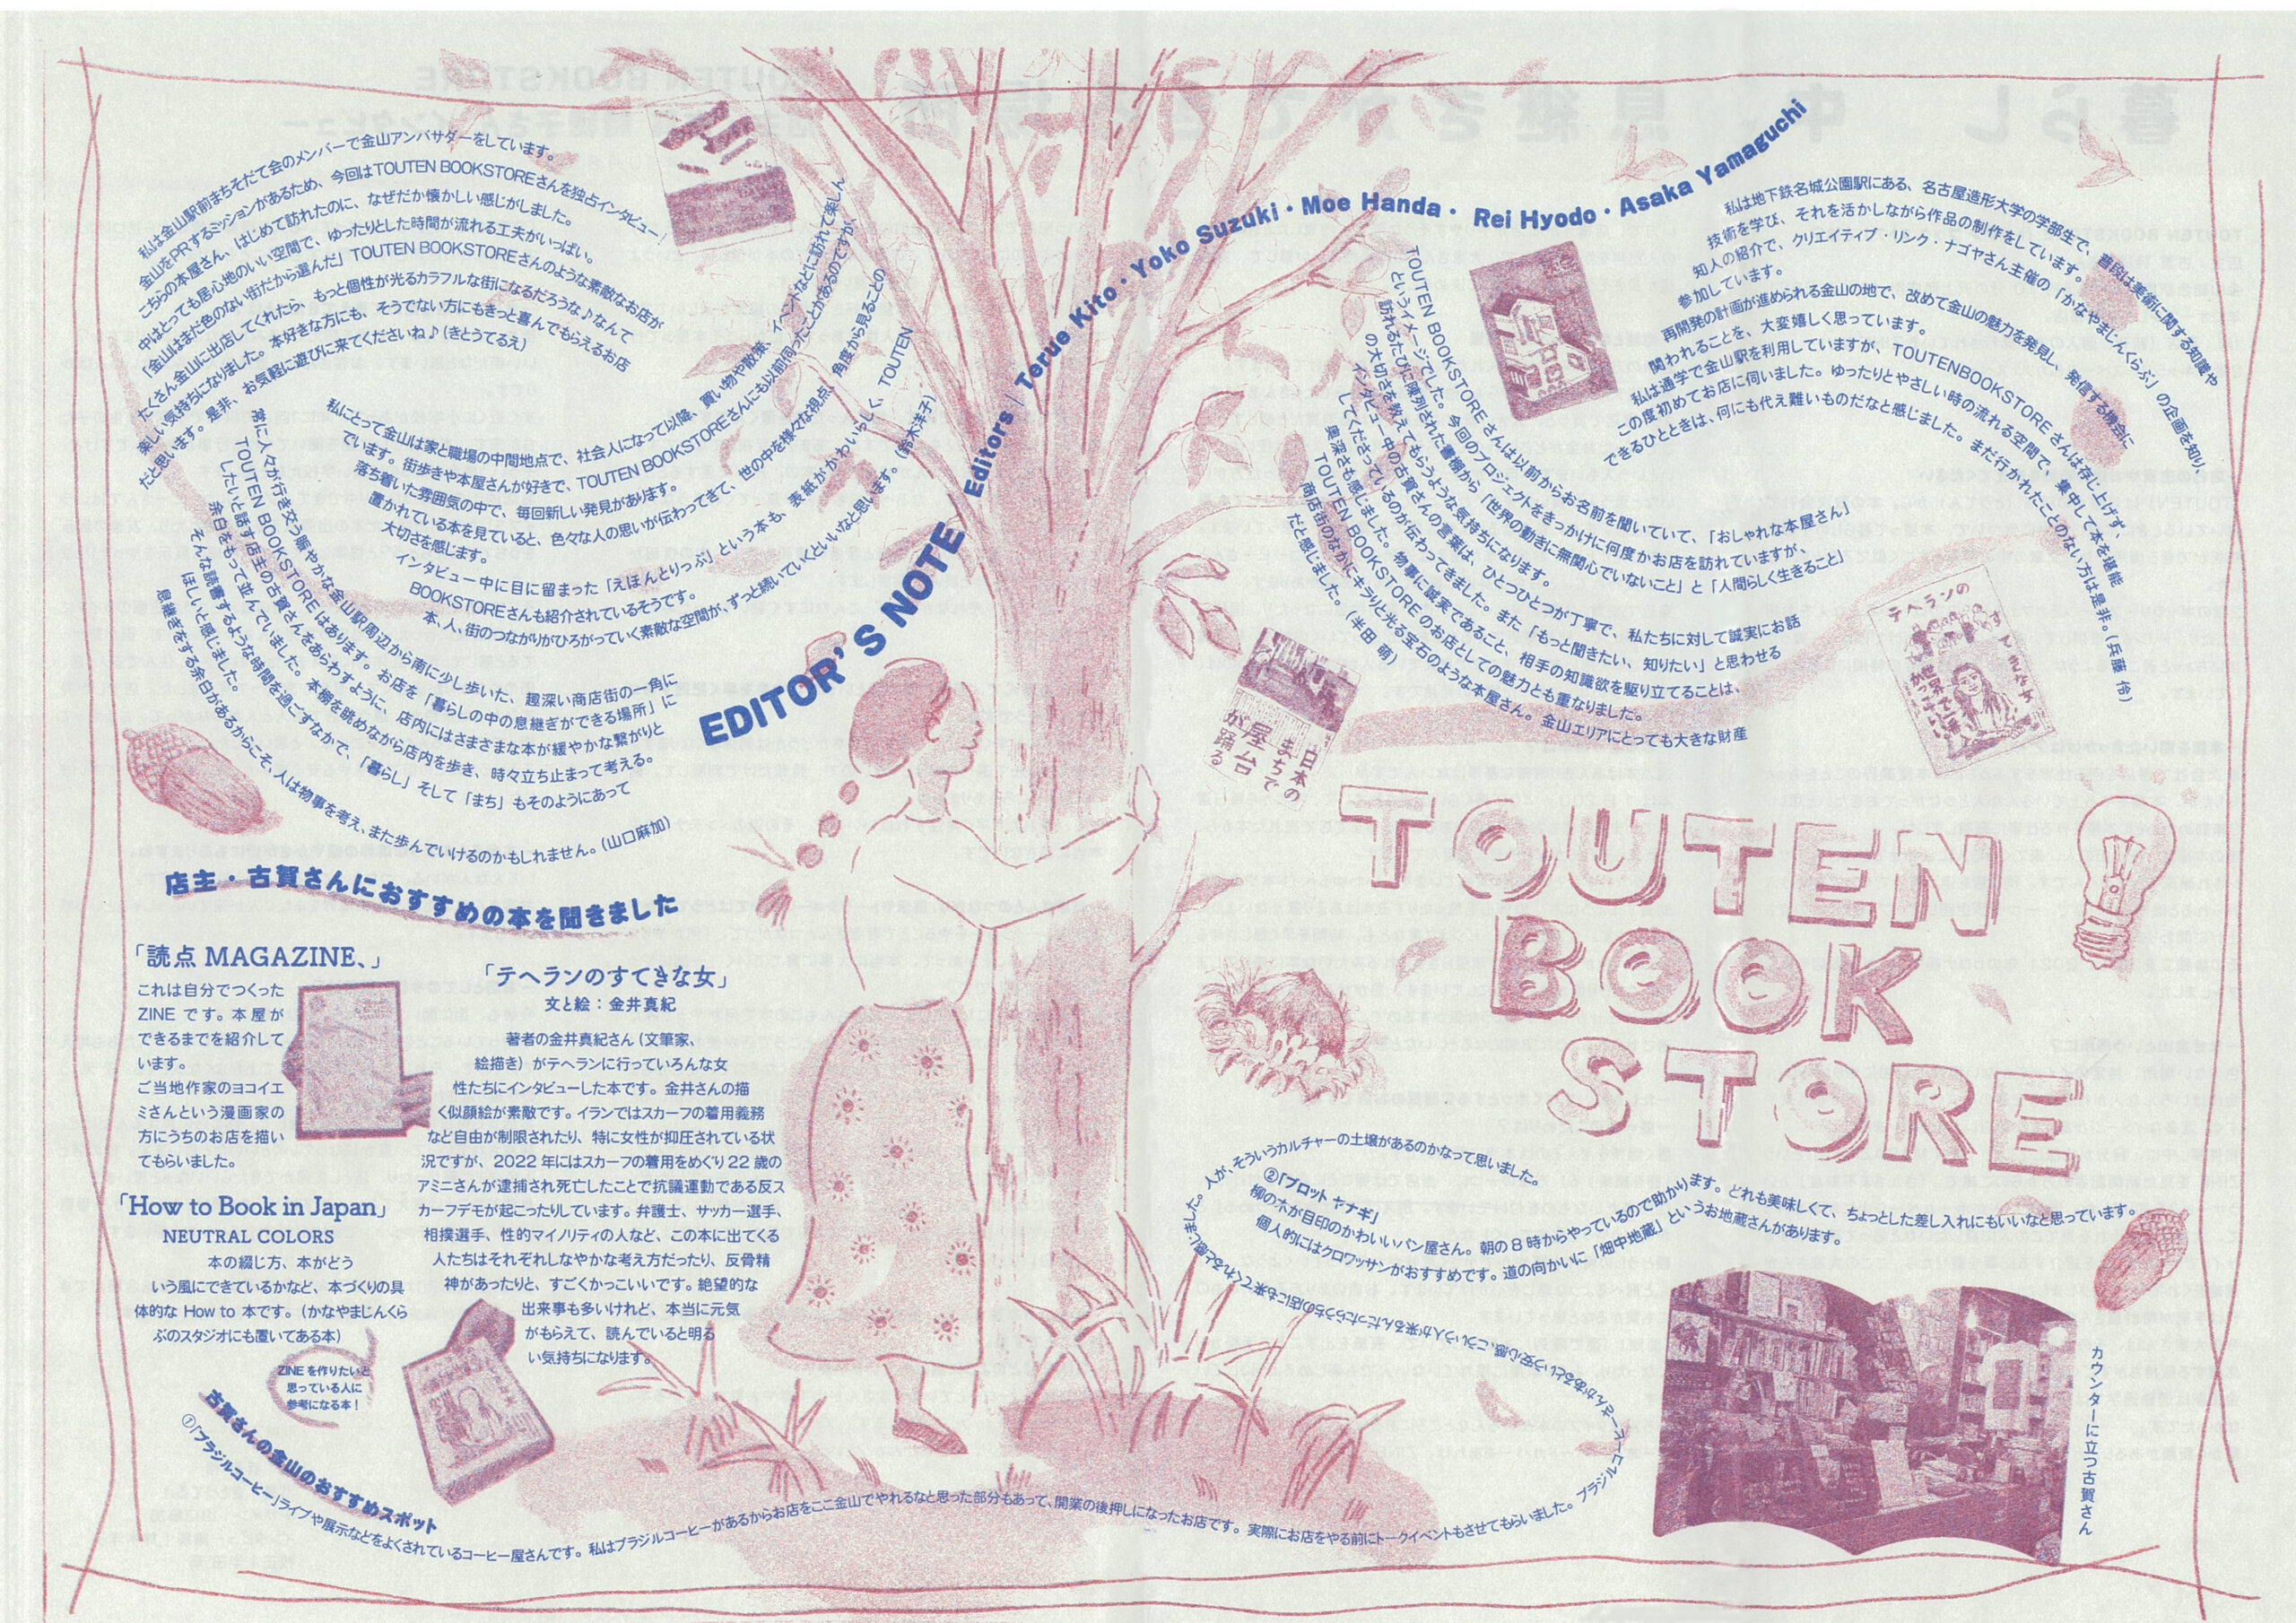 私は金山駅前まちそだて会のメンバーで金山アンバサダーをしています。
金山をPRするミッションがあるため、今回はTOUTEN BOOKSTOREさんを独占インタビュー！
こちらの本屋さん、はじめて訪れたのに、なぜだか懐かしい感じがしました。
中はとっても居心地のいい空間で、ゆったりとした時間が流れる工夫がいっぱい。
「金山はまだ色のない街だから選んだ」TOUTEN BOOKSTOREさんのような素敵なお店が
たくさん金山に出店してくれたら、もっと個性が光るカラフルな街になるだろうな♪なんて
楽しい気持ちになりました。本好きな方にも、そうでない方にもきっと喜んでもらえるお店
だと思います。是非、お気軽に遊びに来てくださいね♪(きとうてるえ)
私にとって金山は家と職場の中間地点で、社会人になって以降、買い物や散策、イベントなどに訪れて楽しん
でいます。街歩きや本屋さんが好きで、TOUTEN BOOKSTOREさんにも以前伺ったことがあるのですが、
落ち着いた雰囲気の中で、毎回新しい発見があります。
置かれている本を見ていると、色々な人の思いが伝わってきて、世の中を様々な視点、角度から見ることの
大切さを感じます。
インタビュー中に目に留まった「えほんとりっぷ」という本も、表紙がかわいらしく、TOUTEN
BOOKSTOREさんも紹介されているそうです。
本、人、街のつながりがひろがっていく素敵な空間が、ずっと続いていくといいなと思います。(鈴木洋子)
常に人々が行き交う賑やかな金山駅周辺から南に少し歩いた、趣深い商店街の一角に
TOUTEN BOOKSTOREはあります。お店を「暮らしの中の息継ぎができる場所」に
したいと話す店主の古賀さんをあらわすように、店内にはさまざまな本が緩やかな繋がりと
余白をもって並んでいました。本棚を眺めながら店内を歩き、時々立ち止まって考える。
そんな読書するような時間を過ごすなかで、「暮らし」そして「まち」もそのようにあって
ほしいと感じました。
息継ぎをする余白があるからこそ、人は物事を考え、また歩んでいけるのかもしれません。(山口麻加)
EDITOR'S NOTE
Editors | Terue Kito・Yoko Suzuki・Moe Handa・Rei Hyodo・Asaka Yamaguchi
私は地下鉄名城公園駅にある、名古屋造形大学の学部生で、普段は美術に関する知識や
技術を学び、それを活かしながら作品の制作をしています。
知人の紹介で、クリエイティブ・リンク・ナゴヤさん主催の「かなやまじんくらぶ」の企画を知り、
参加しています。
再開発の計画が進められる金山の地で、改めて金山の魅力を発見し、発信する機会に
関われることを、大変嬉しく思っています。
私は通学で金山駅を利用していますが、TOUTENBOOKSTOREさんは存じ上げず、
この度初めてお店に伺いました。ゆったりとやさしい時の流れる空間で、集中して本を堪能
できるひとときは、何にも代え難いものだなと感じました。まだ行かれたことのない方は是非。(兵藤 伶)
TOUTEN BOOKSTOREさんは以前からお名前を聞いていて、「おしゃれな本屋さん」
というイメージでした。今回のプロジェクトをきっかけに何度かお店を訪れていますが、
訪れるたびに陳列された書棚から「世界の動きに無関心でいないこと」と「人間らしく生きること」
の大切さを教えてもらうような気持ちになります。
インタビュー中の古賀さんの言葉は、ひとつひとつが丁寧で、私たちに対して誠実にお話
してくださっているのが伝わってきました。また「もっと聞きたい、知りたい」と思わせる
奥深さも感じました。物事に誠実であること、相手の知識欲を駆り立てることは、
TOUTEN BOOKSTOREのお店としての魅力とも重なりました。
商店街のなかにキラリと光る宝石のような本屋さん。金山エリアにとっても大きな財産
だと感じました。(半田 萌)
日本の
まちで
屋台
が踊る
テヘランの
すてきな女
世界で一番
かっこいい
TOUTEN
BOOK
STORE
店主・古賀さんにおすすめの本を聞きました
「読点 MAGAZINE、」
これは自分でつくった
ZINE です。本屋が
できるまでを紹介して
います。
ご当地作家のヨコイエ
ミさんという漫画家の
方にうちのお店を描い
てもらいました。
「How to Book in Japan」
NEUTRAL COLORS
本の綴じ方、本がどう
いう風にできているかなど、本づくりの具
体的な How to 本です。(かなやまじんくら
ぶのスタジオにも置いてある本)
ZINE を作りたいと
思っている人に
参考になる本！
「テヘランのすてきな女」
文と絵：金井真紀
著者の金井真紀さん(文筆家、
絵描き)がテヘランに行っていろんな女
性たちにインタビューした本です。金井さんの描
く似顔絵が素敵です。イランではスカーフの着用義務
など自由が制限されたり、特に女性が抑圧されている状
況ですが、2022 年にはスカーフの着用をめぐり 22 歳の
アミニさんが逮捕され死亡したことで抗議運動である反ス
カーフデモが起こったりしています。弁護士、サッカー選手、
相撲選手、性的マイノリティの人など、この本に出てくる
人たちはそれぞれしなやかな考え方だったり、反骨精
神があったりと、すごくかっこいいです。絶望的な
出来事も多いけれど、本当に元気
がもらえて、読んでいると明る
い気持ちになります。
古賀さんの金山のおすすめスポット
①「ブラジルコーヒー」ライブや展示などをよくされているコーヒー屋さんです。私はブラジルコーヒーがあるからお店をここ金山でやれるなと思った部分もあって、開業の後押しになったお店です。実際にお店をやる前にトークイベントもさせてもらいました。ブラジルコーヒーさんがあるという安心感、こういう人が来るんだったらうちの店にも来てくれると感じました。人が、そういうカルチャーの土壌があるのかなって思いました。
②「ブロット ヤナギ」
柳の木が目印のかわいいパン屋さん。朝の 8 時からやっているので助かります。どれも美味しくて、ちょっとした差し入れにもいいなと思っています。
個人的にはクロワッサンがおすすめです。道の向かいに「畑中地蔵」というお地蔵さんがあります。
カウンターに立つ古賀さん